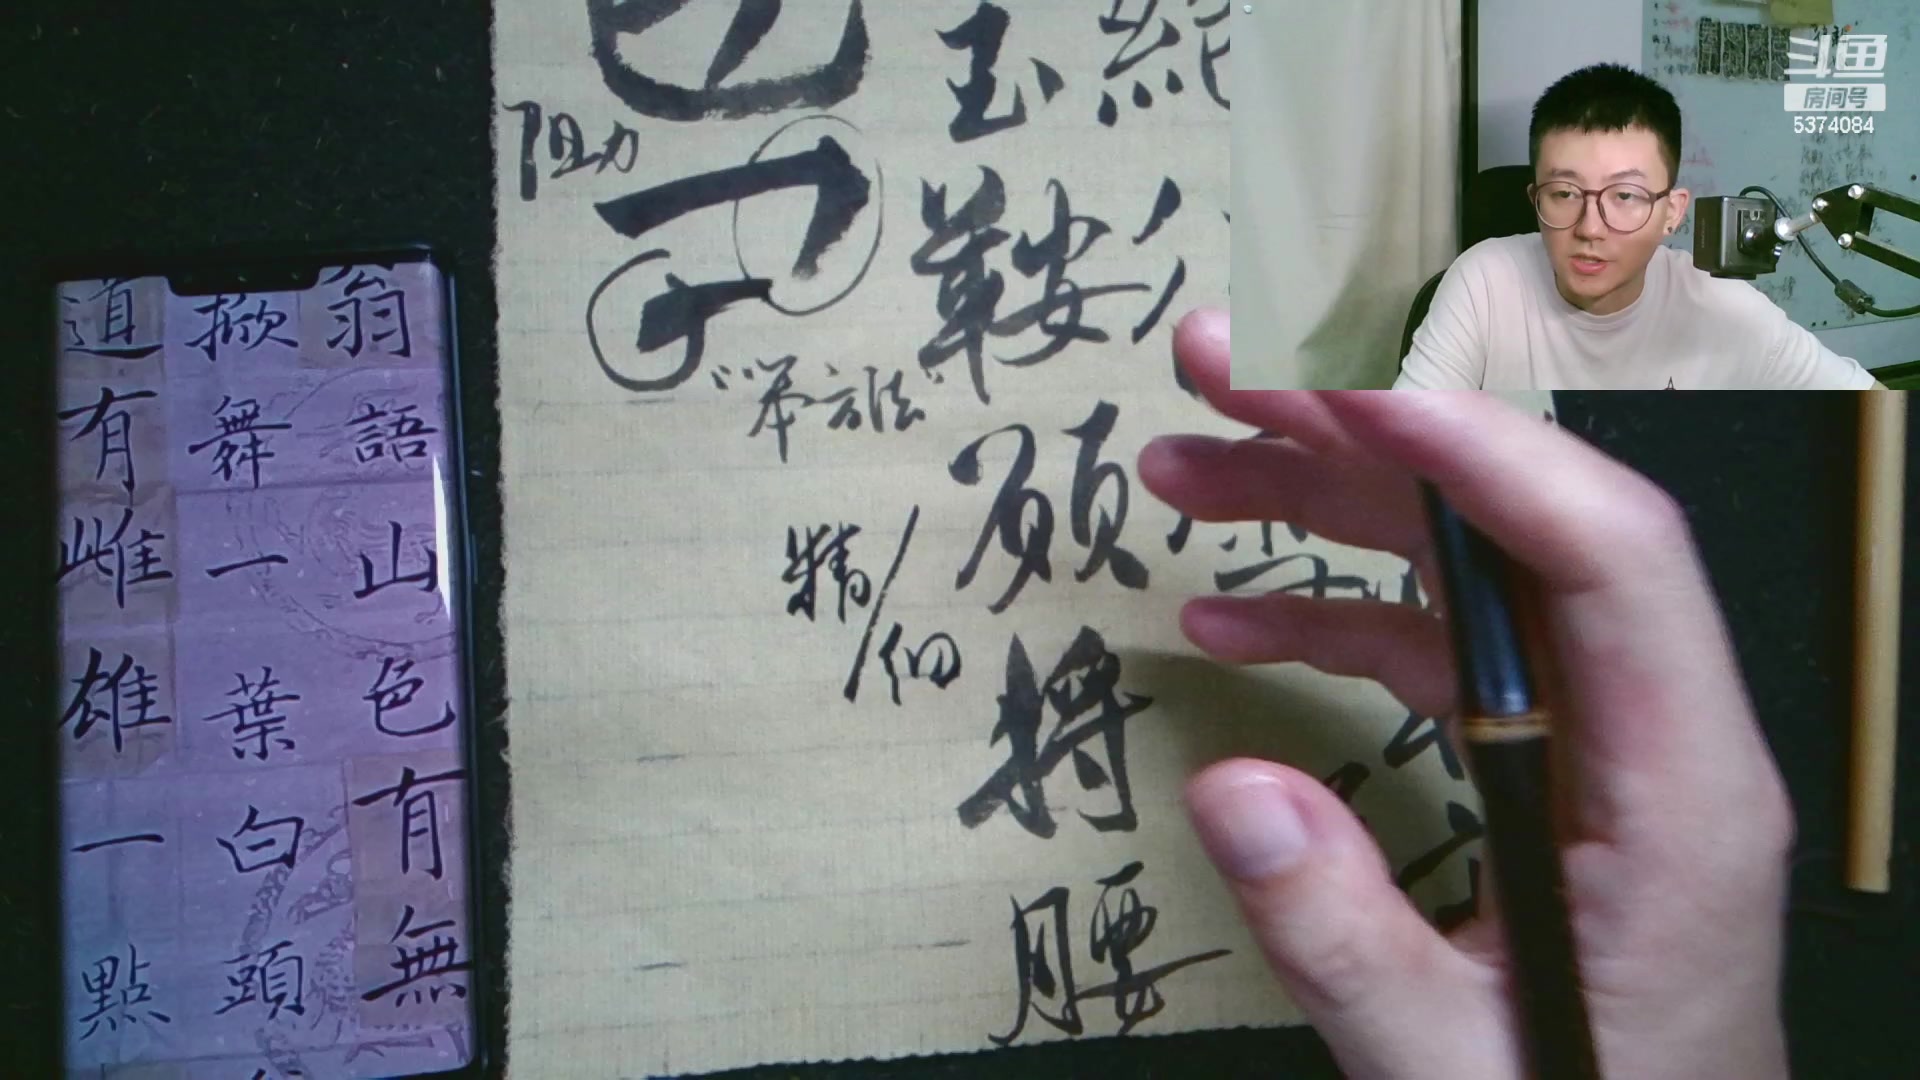 斗鱼
房间号
5374084
玉鞍願将腰
阻力
“笨方法”
精/细
翁語山色有無
掀舞一葉白頭
道有雌雄一點